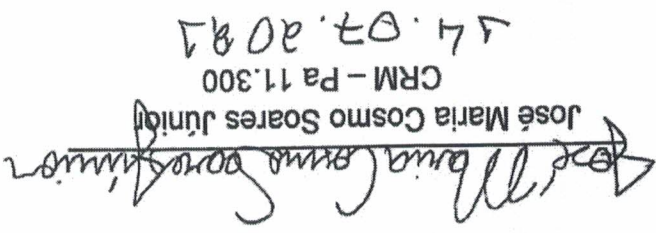 José Maria Cosmo Soares Júnior
José Maria Cosmo Soares Júnior
CRM – Pa 11.300
14.07.2021